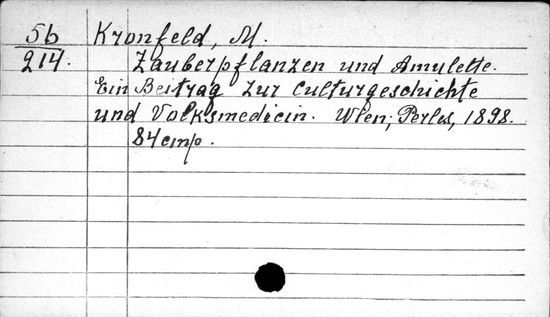 56 Kronfeld, M.
214. Zauberpflanzen und Amulette.
Ein Beitrag zur Culturgeschichte
und Volksmedicin. Wien, Perles, 1898.
84 стр.